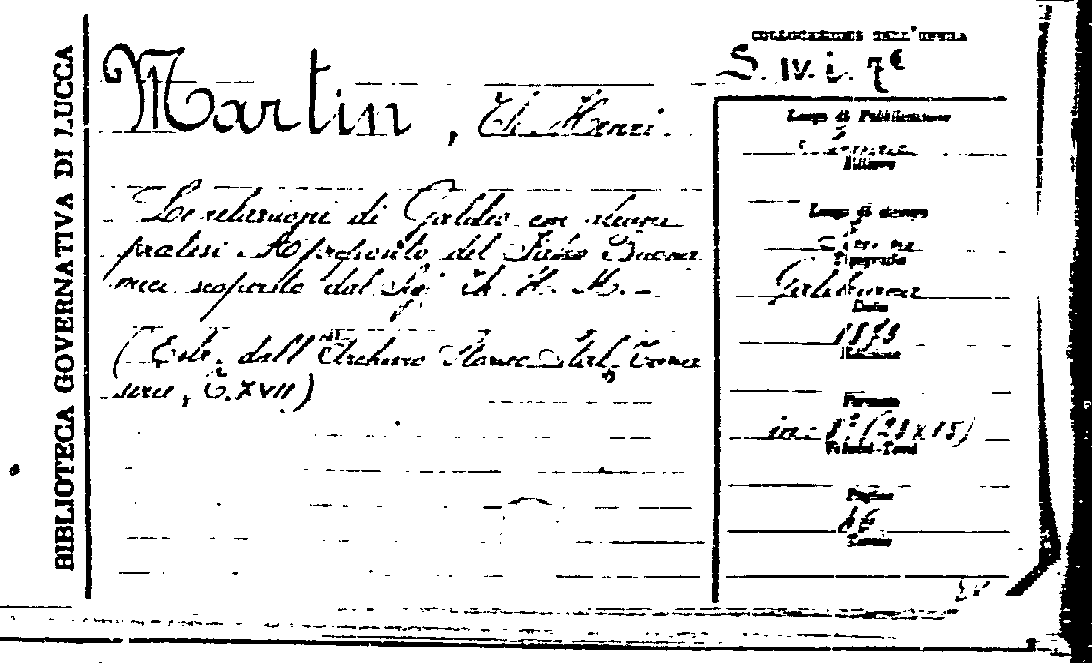 BIBLIOTECA GOVERNATIVA DI LUCCA
COLLOCAZIONE DELL'OPERA
S. IV. i. 7
Martin, Th. Henri.
Le relazioni di Galileo con alcuni
pratesi A proposito del Falso Buona
mici scoperto dal Sig. Th. H. M. –
(Estr. dall'Archivio Storico Ital., Terza
serie, T. XVII)
Luogo di Pubblicazione
Editore
Luogo di stampa
Tipografia
Galileiana
Data
1873
Edizione
Formato
in-8° (23x15)
Volumi-Tomi
Pagine